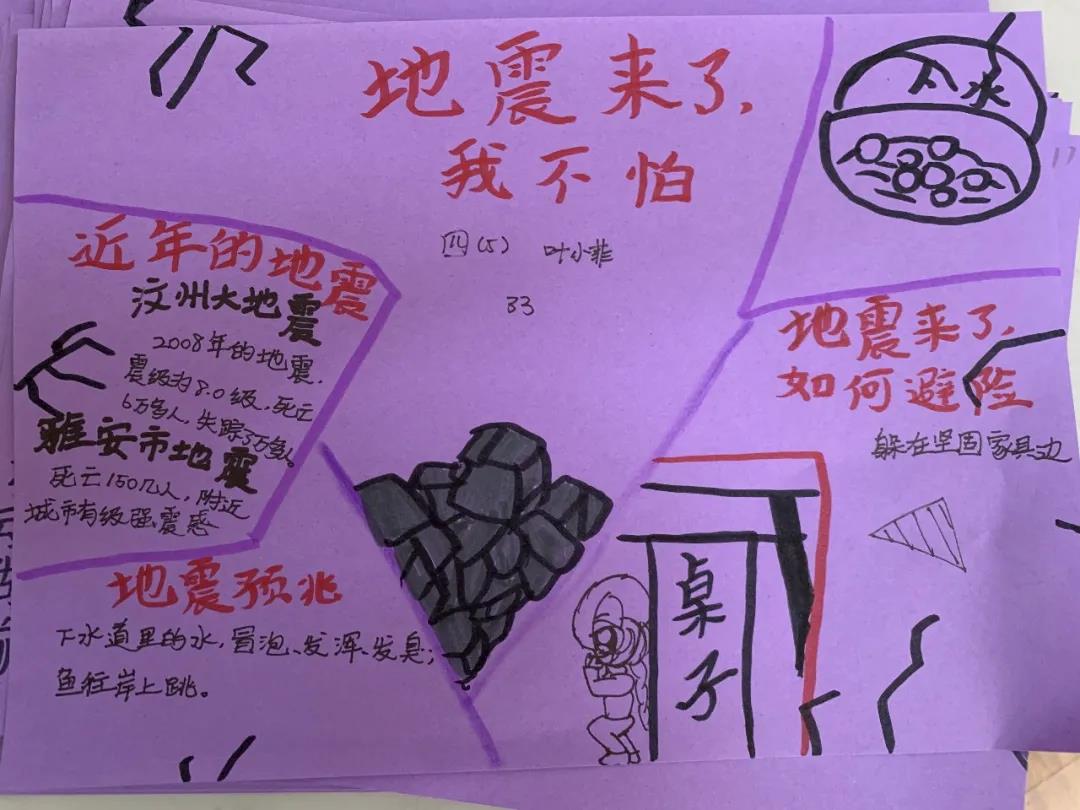 地震来了,
我不怕
四(5) 叶小菲
33
下水
近年的地震
汶州大地震
2008年的地震,
震级为8.0级,死亡
6万多人,失踪3万多人。
雅安市地震
死亡150几人,附近
城市有级强震感
地震预兆
下水道里的水,冒泡、发浑、发臭;
鱼往岸上跳。
地震来了,
如何避险
躲在坚固家具边
桌子